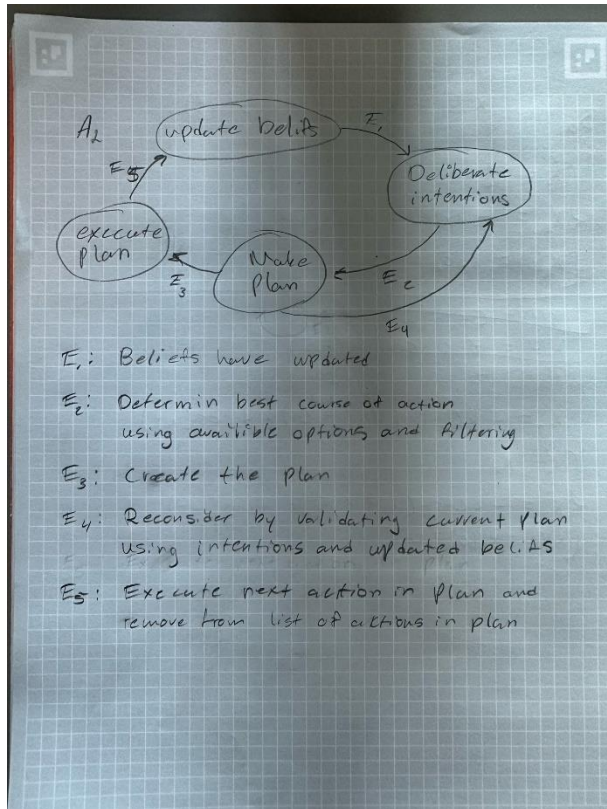 A2
update belifs
E1
Deliberate
intentions
E5
execute
plan
Make
plan
E3
E2
E4
E1: Beliefs have updated
E2: Determin best course of action
using availible options and filtering
E3: Create the plan
E4: Reconsider by validating current plan
using intentions and updated belifs
E5: Execute next action in plan and
remove from list of actions in plan